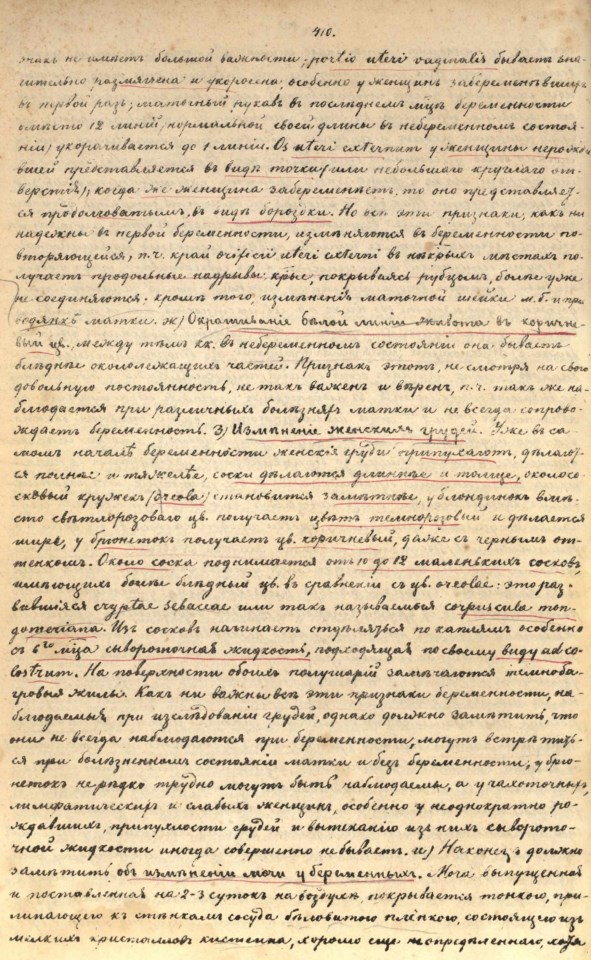 410.
знакъ не имѣетъ большой важности; portio uteri vaginalis бываетъ зна-
чительно размягчена и укорочена, особенно у женщинъ забеременѣвшихъ
въ первой разъ; маточный рукавъ въ послѣднемъ мцѣ беременности
вмѣсто 12 линій (нормальной своей длины въ небеременномъ состоя-
ніи) укорачивается до 1 линіи. Os uteri externum у женщины нерожав-
шей представляется въ видѣ точки (или небольшаго круглаго от-
верстія), когда же женщина забеременѣетъ, то оно представляет-
ся продолговатымъ, въ видѣ борозды. Но всѣ эти признаки, какъ ни
надежны въ первой беременности, измѣняются въ беременности по-
вторяющейся, п.ч. край orificii uteri externi въ нѣкрыхъ мѣстахъ по-
лучаетъ продольные надрывы, крые, покрываясь рубцомъ, болѣе уже
не соединяются. кромѣ того, измѣненія маточной шейки м.б. и при
водянкѣ матки. ж) Окрашиваніе бѣлой линіи живота въ коричне-
вый цв. между тѣмъ кк. въ небеременномъ состояніи она бываетъ
блѣднѣе околележащихъ частей. Признакъ этотъ, не смотря на свою
довольную постоянность, не такъ важенъ и вѣренъ, п.ч. такъ же на-
блюдается при различныхъ болѣзняхъ матки и не всегда сопрово-
ждаетъ беременность. З) Измѣненіе женскихъ грудей. Уже въ са-
момъ началѣ беременности женскія груди припухаютъ, дѣлают-
ся полнѣе и тяжелѣе, соски дѣлаются длиннѣе и толще, околосо-
сковый кружекъ (areola) становится замѣтнѣе, у блондинокъ вмѣ-
сто свѣтлорозоваго цв. получаетъ цвѣтъ темнорозовый и дѣлается
шире, у брюнетокъ получаетъ цв. коричневый, даже съ чернымъ от-
тенкомъ. Около соска поднимается отъ 10 до 12 маленькихъ сосковъ,
имѣющихъ болѣе блѣдный цв. въ сравненіи съ цв. areolae: это раз-
вившіяся cryptae sebaceae или такъ называемыя corpuscula mon-
domeriana. Изъ сосковъ начинаетъ отдѣляться по каплямъ особенно
съ 6го мѣца сывороточная жидкость, подходящая по своему виду ad co-
lostrum. На поверхности обоихъ полушарій замѣчаются темноба-
гровыя жилы. Какъ ни важны всѣ эти признаки беременности, на-
блюдаемыя при изслѣдованіи грудей, однако должно замѣтить, что
они не всегда наблюдаются при беременности, могутъ встрѣтить-
ся при болѣзненномъ состояніи матки и безъ беременности; у брю-
нетокъ нерѣдко трудно могутъ быть наблюдаемы, а у чахоточныхъ,
лимфатическихъ и слабыхъ женщинъ, особенно у неоднократно ро-
ждавшихъ, припухлости грудей и вытеканію изъ нихъ сыворото-
чной жидкости иногда совершенно небываетъ. и) Наконецъ должно
замѣтить объ измѣненіи мочи у беременныхъ. Моча выпущенная
и поставленная на 2-3 сутокъ на воздухѣ покрывается тонкою, при-
липающею къ стѣнкамъ сосуда бѣловатою плёнкою, состоящею изъ
мѣлкихъ кристалловъ кистеина, хорошо еще неопредѣленнаго, хотя